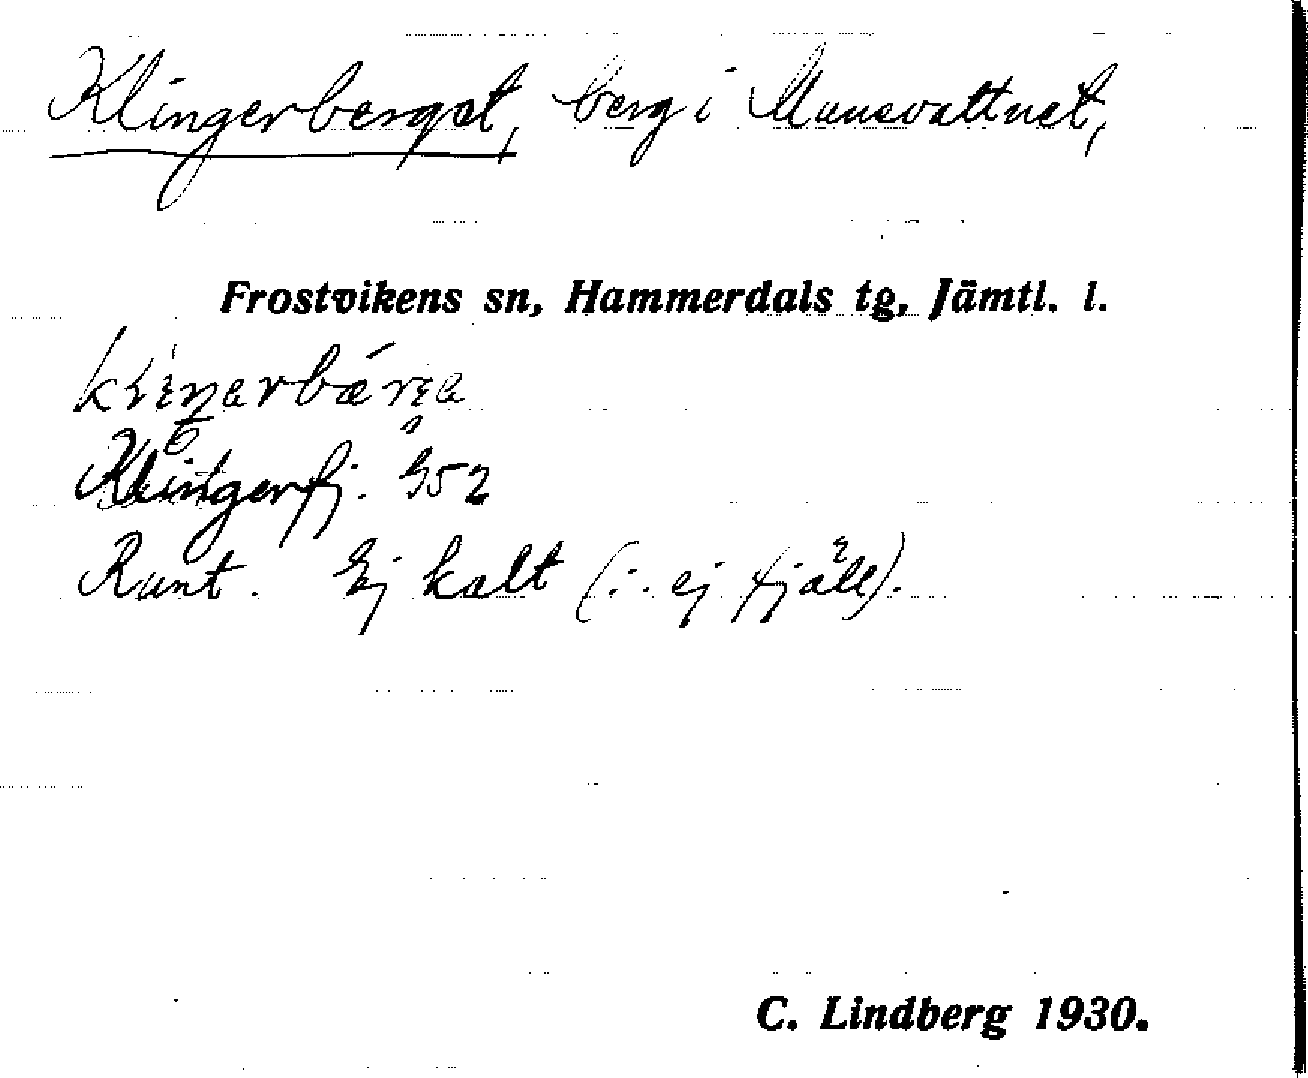 Klingerberget, berg i Munsvattnet,
Frostvikens sn, Hammerdals tg, Jämtl. l.
Klingerfj. G52
Runt. Ej kalt (: ej fjäll).
C. Lindberg 1930.